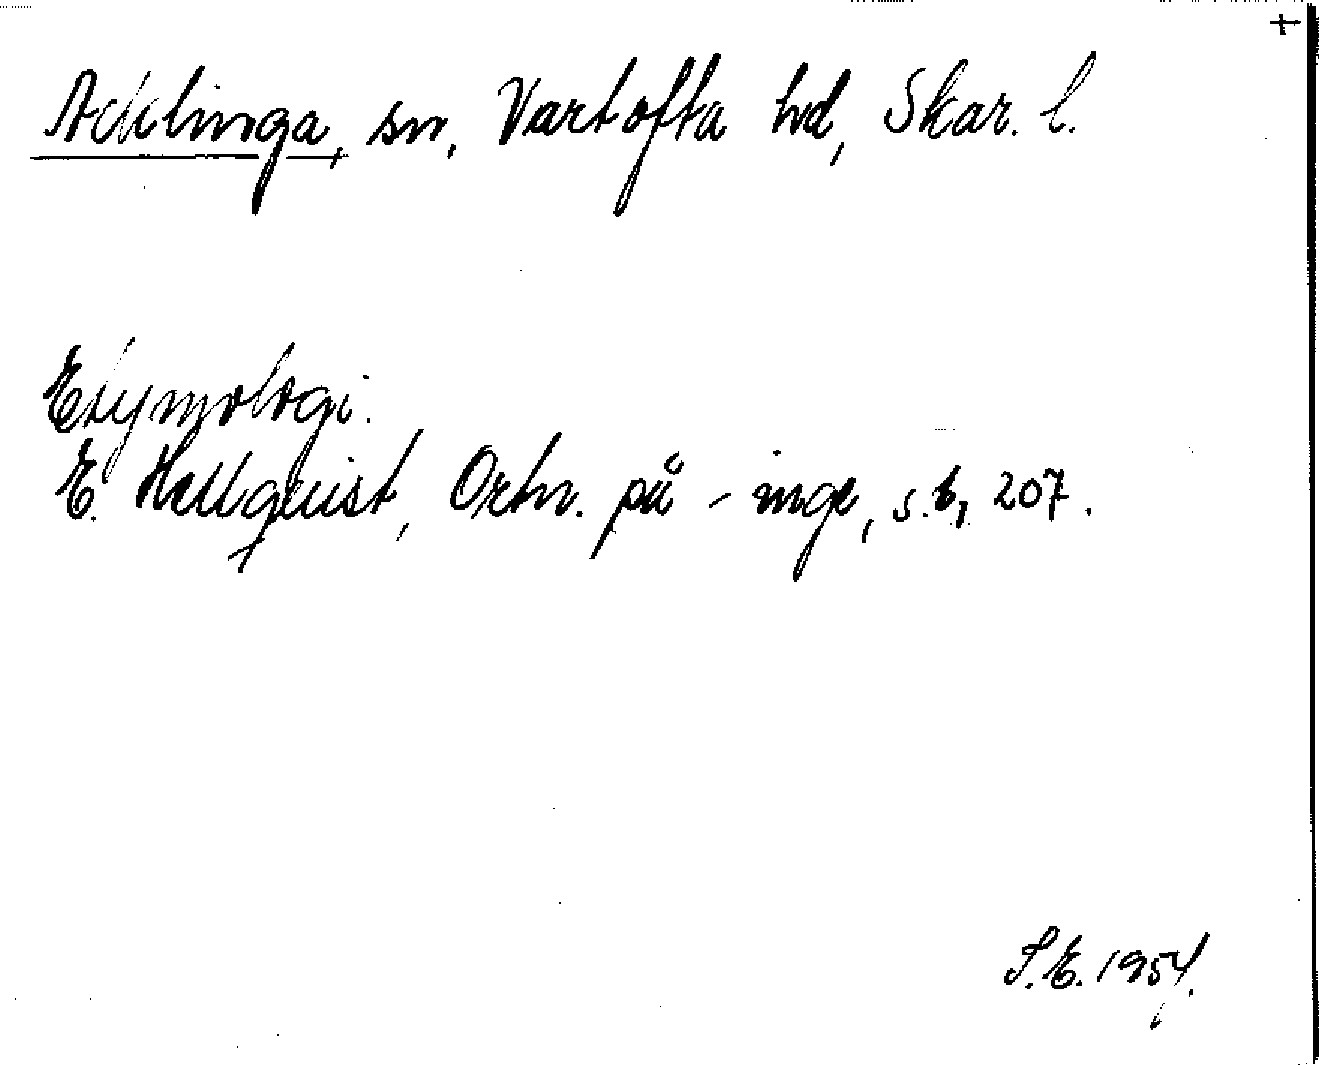 Acklinga, sn, Vartofta hd, Skar. l.
Etymologi.
E. Hellquist, Ortn. på -inge, s. 1, 207.
S.E. 1954.